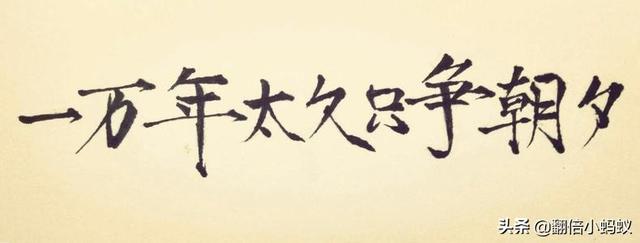 一万年太久只争朝夕
头条 @翻倍小蚂蚁